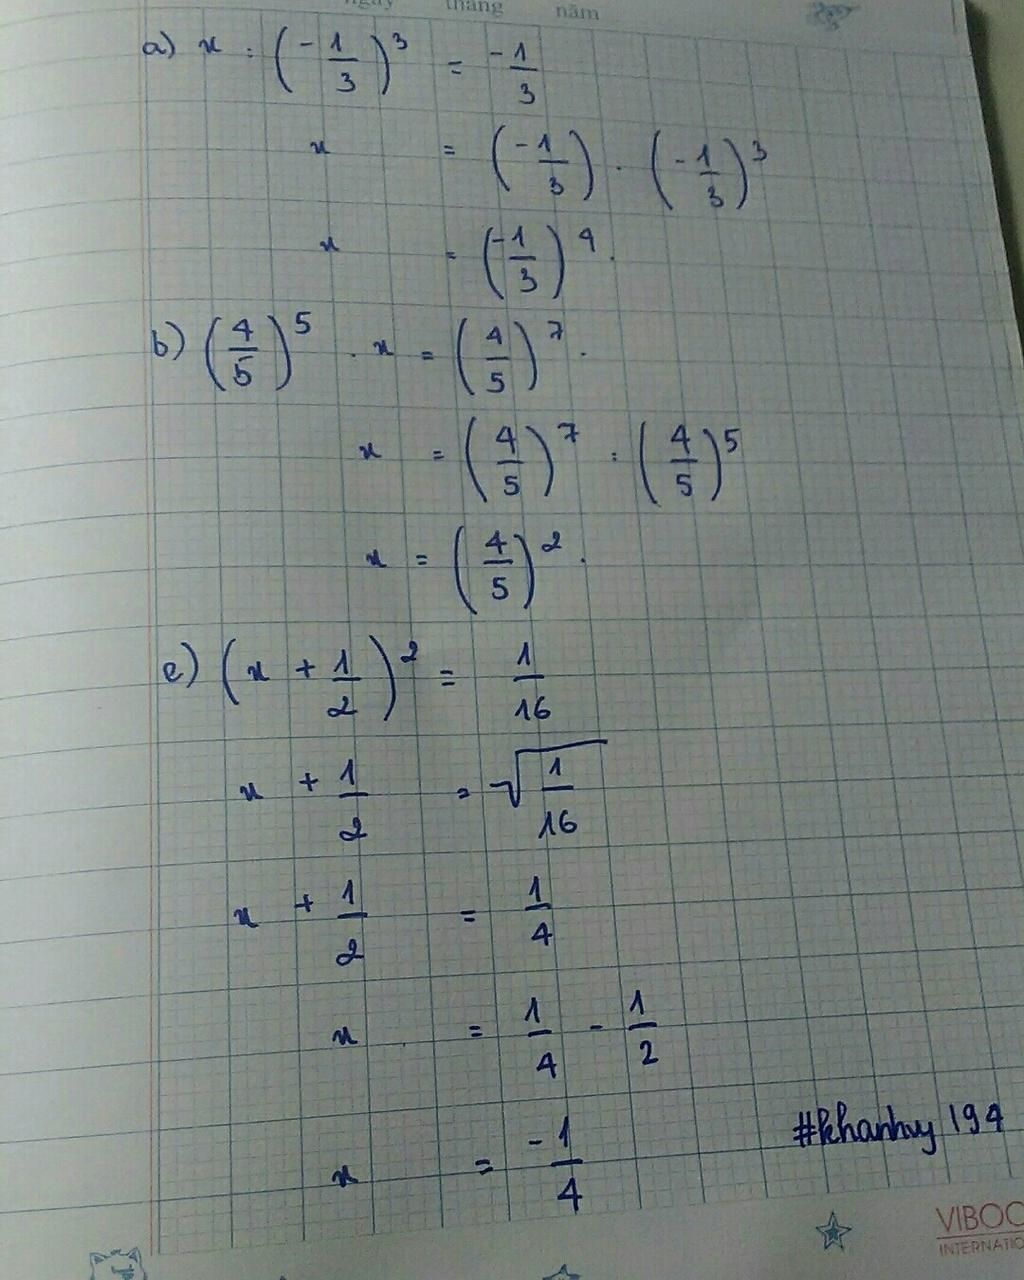 ngày tháng năm
a) x : (-1/3)³ = -1/3
x = (-1/3) . (-1/3)³
x = (-1/3)⁴.
b) (4/5)⁵ . x = (4/5)⁷.
x = (4/5)⁷ : (4/5)⁵
x = (4/5)².
c) (x + 1/2)² = 1/16
x + 1/2 = √(1/16)
x + 1/2 = 1/4
x = 1/4 - 1/2
x = -1/4
#khanhuy194
VIBOO
INTERNATIO